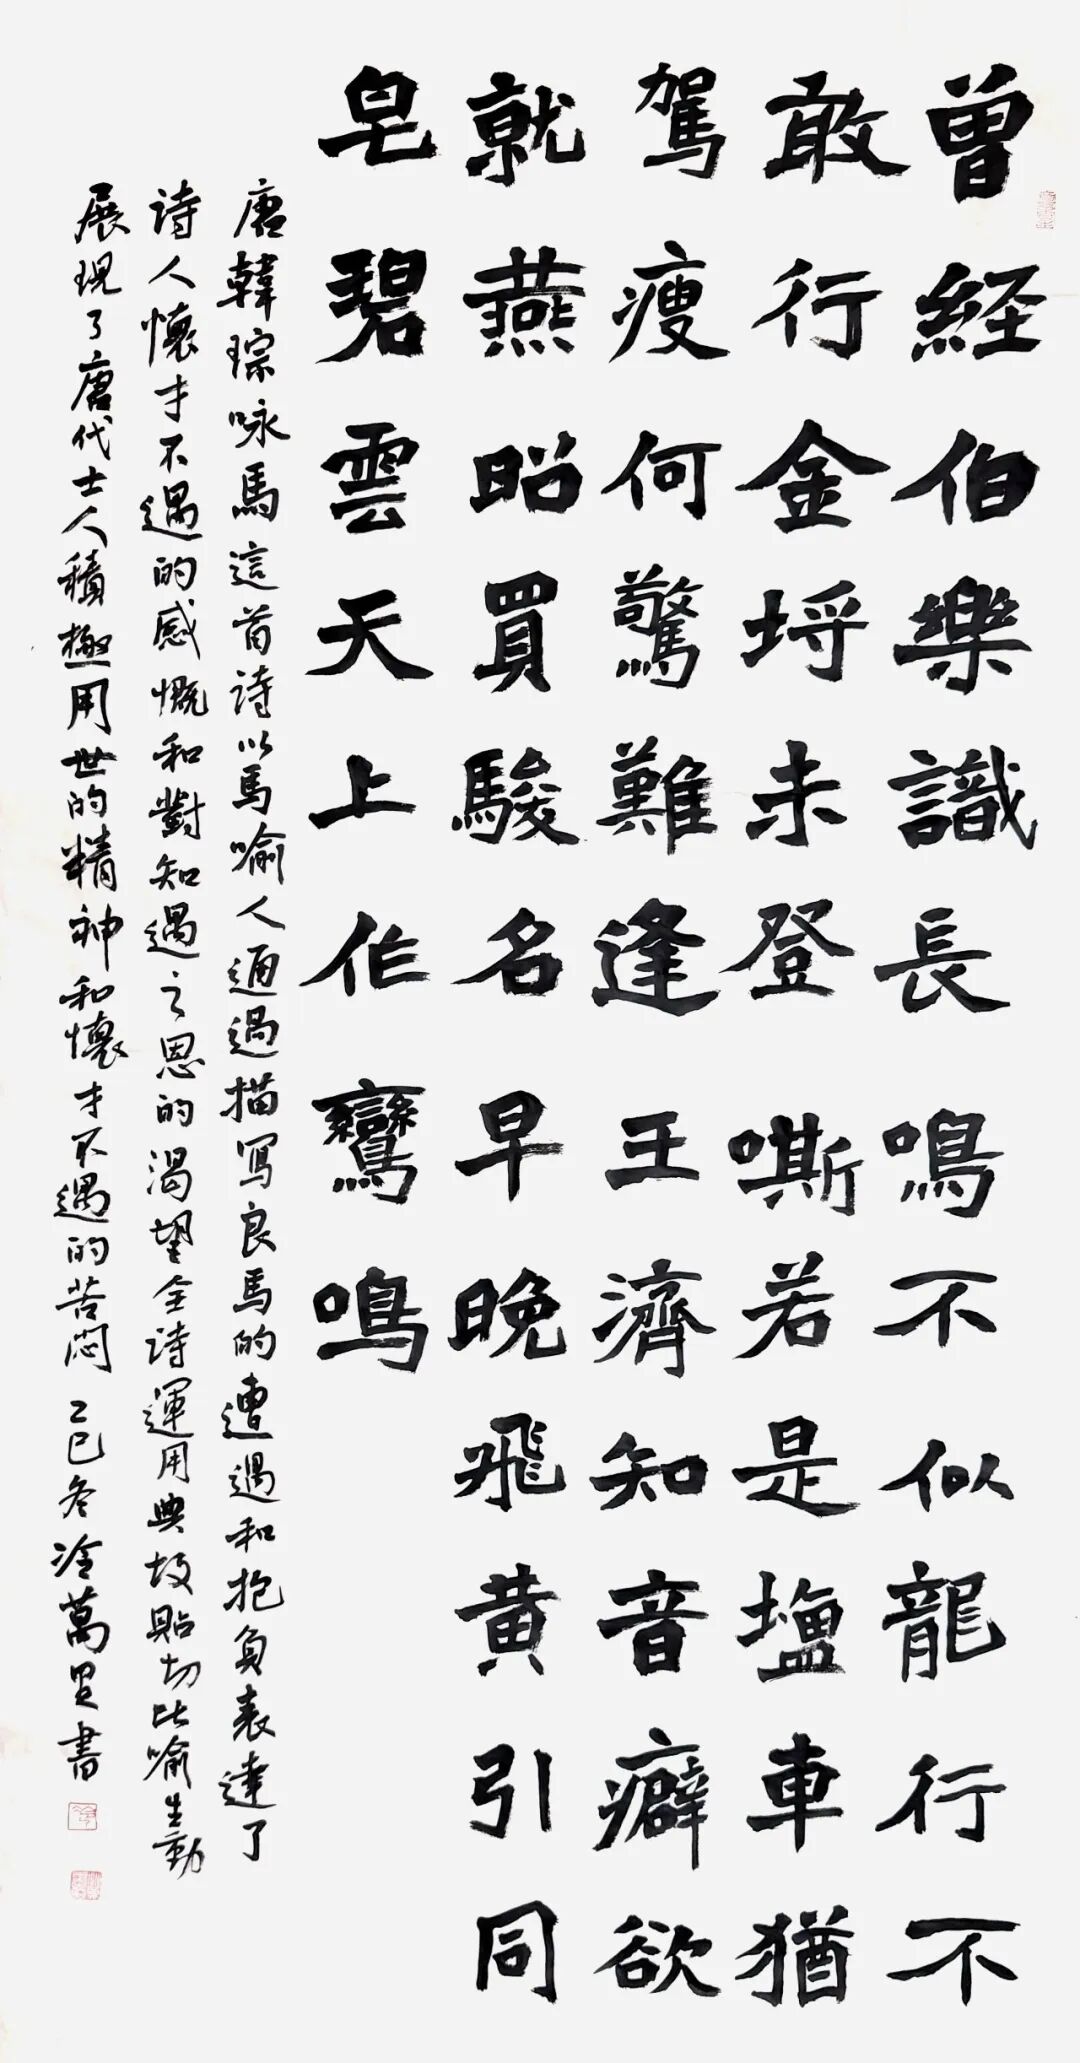 曾經伯樂識長鳴不似龍行不
敢行金埒未登嘶若是壇車猶
駕瘦何驚難逢王濟知音癖欲
就燕昭買駿名早晚飛黄引同
皂碧雲天上作鸞鳴
唐韓琮咏馬這首詩以馬喻人通過描寫良馬的遭遇和抱負表達了
詩人懷才不遇的感慨和對知遇之恩的渴望全詩運用典故貼切比喻生動
展現了唐代士人積極用世的精神和懷才不遇的苦悶 乙巳冬冷萬里書